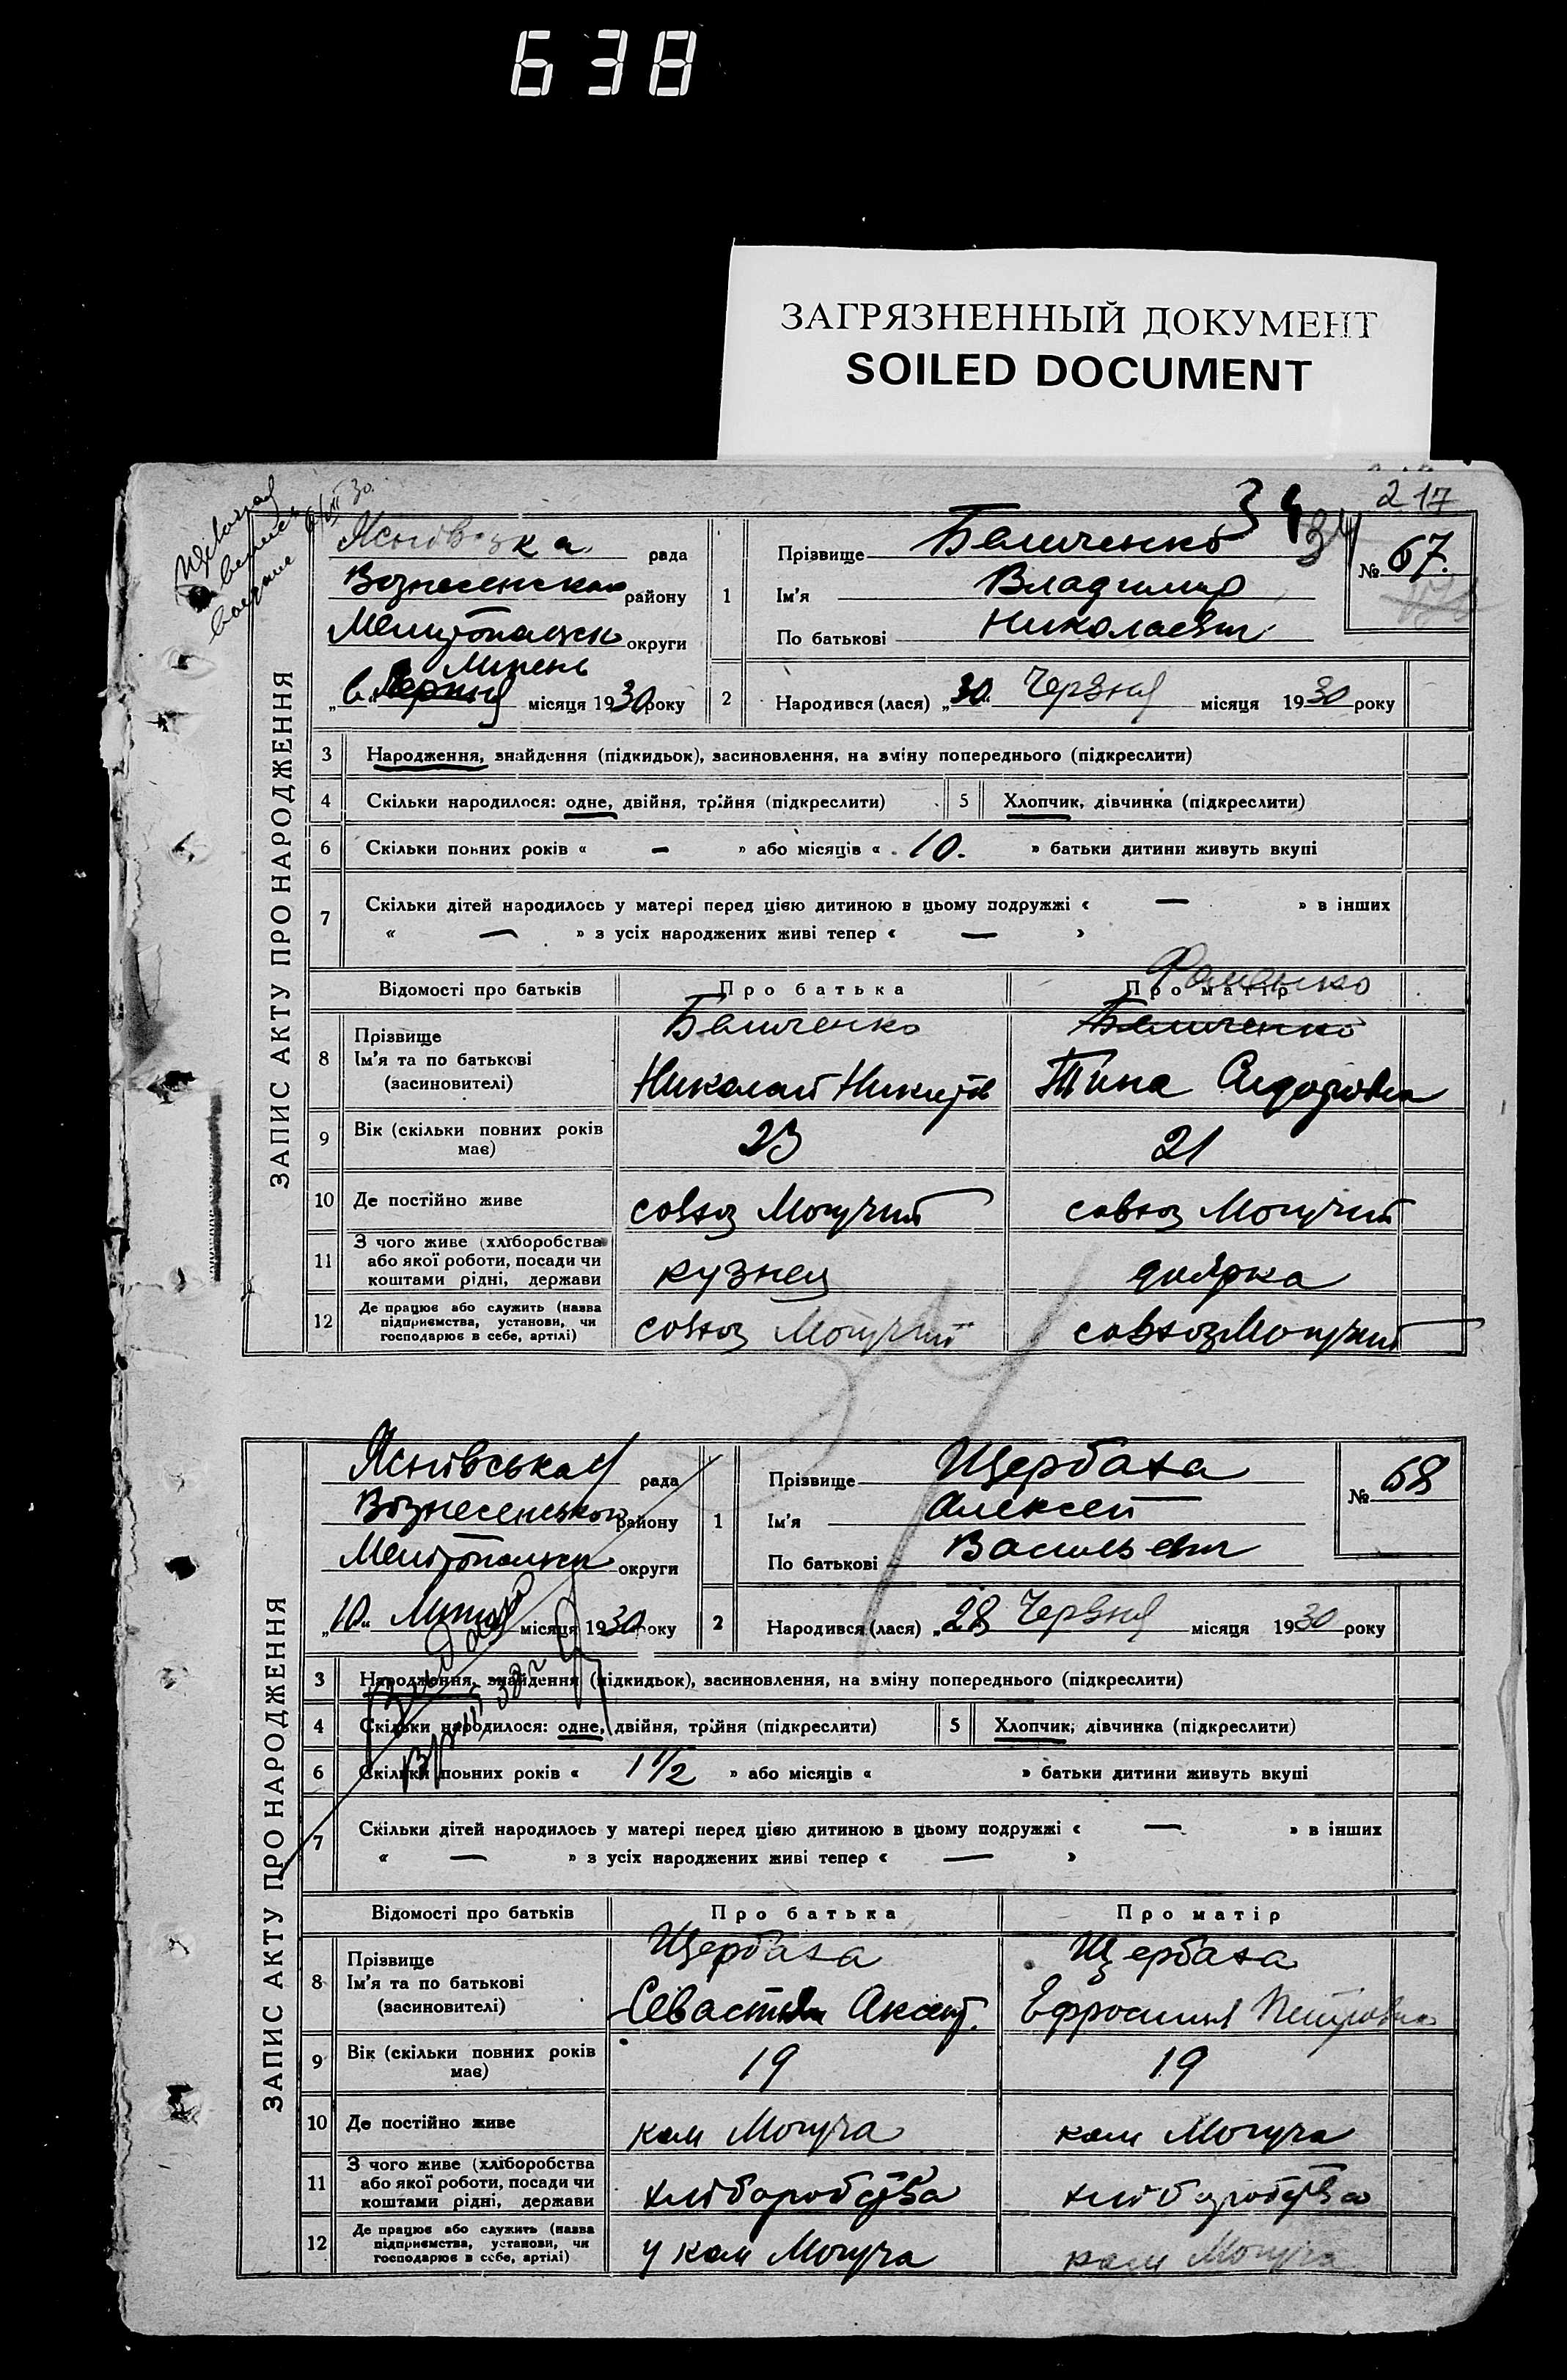 638
ЗАГРЯЗНЕННЫЙ ДОКУМЕНТ
SOILED DOCUMENT
217
34
34
ЗАПИС АКТУ ПРО НАРОДЖЕННЯ
рада
Вознесенская району
Мелитопальск округи
„6“ Липень місяця 1930 року
1
Прізвище Беличенко
Ім'я Владимир
По батькові Николаевич
№ 67.
2
Народився (лася) „30“ Червня місяця 1930 року
3 Народження, знайдення (підкидьок), засиновлення, на зміну попереднього (підкреслити)
4 Скільки народилося: одне, двійня, трійня (підкреслити) 5 Хлопчик, дівчинка (підкреслити)
6 Скільки повних років « — » або місяців « 10. » батьки дитини живуть вкупі
7 Скільки дітей народилось у матері перед цією дитиною в цьому подружжі « — » в інших
« — » з усіх народжених живі тепер « — »
Відомості про батьків Про батька Про матір
8 Прізвище
Ім'я та по батькові
(засиновителі)
Беличенко
Николай Никитов
Беличенко
Тина Сидоровна
9 Вік (скільки повних років має) 23 21
10 Де постійно живе совхоз Могучий совхоз Могучий
11 З чого живе (хліборобства
або якої роботи, посади чи
коштами рідні, держави
кузнец доярка
12 Де працює або служить (назва
підприємства, установи, чи
господарює в себе, артілі)
совхоз Могучий совхоз Могучий
34
ЗАПИС АКТУ ПРО НАРОДЖЕННЯ
рада
Вознесенського району
округи
„10“ Липня місяця 1930 року
1
Прізвище Щербаха
Ім'я Алексей
По батькові Васильевич
№ 68
2
Народився (лася) „28 Червня місяця 1930 року
3 Народження, знайдення (підкидьок), засиновлення, на зміну попереднього (підкреслити)
4 Скільки народилося: одне, двійня, трійня (підкреслити) 5 Хлопчик, дівчинка (підкреслити)
6 Скільки повних років « 1 1/2 » або місяців « » батьки дитини живуть вкупі
7 Скільки дітей народилось у матері перед цією дитиною в цьому подружжі « — » в інших
« — » з усіх народжених живі тепер « — »
Відомості про батьків Про батька Про матір
8 Прізвище
Ім'я та по батькові
(засиновителі)
Щербаха
Севастян Аксент.
Щербаха
Ефросиния Петровна
9 Вік (скільки повних років має) 19 19
10 Де постійно живе ком Могуча ком Могуча
11 З чого живе (хліборобства
або якої роботи, посади чи
коштами рідні, держави
хліборобства хліборобства
12 Де працює або служить (назва
підприємства, установи, чи
господарює в себе, артілі)
у ком Могуча ком Могуча